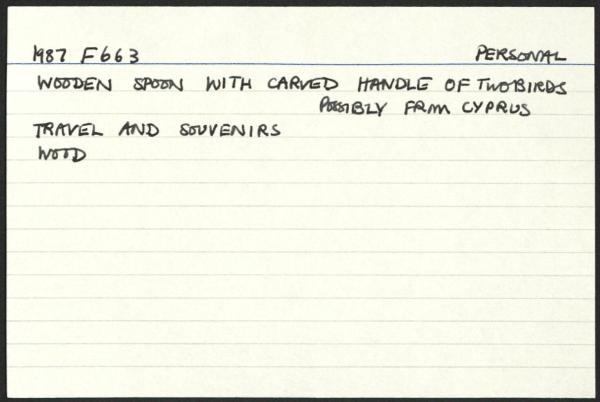 1987 F663 PERSONAL
WOODEN SPOON WITH CARVED HANDLE OF TWO BIRDS
POSSIBLY FROM CYPRUS
TRAVEL AND SOUVENIRS
WOOD